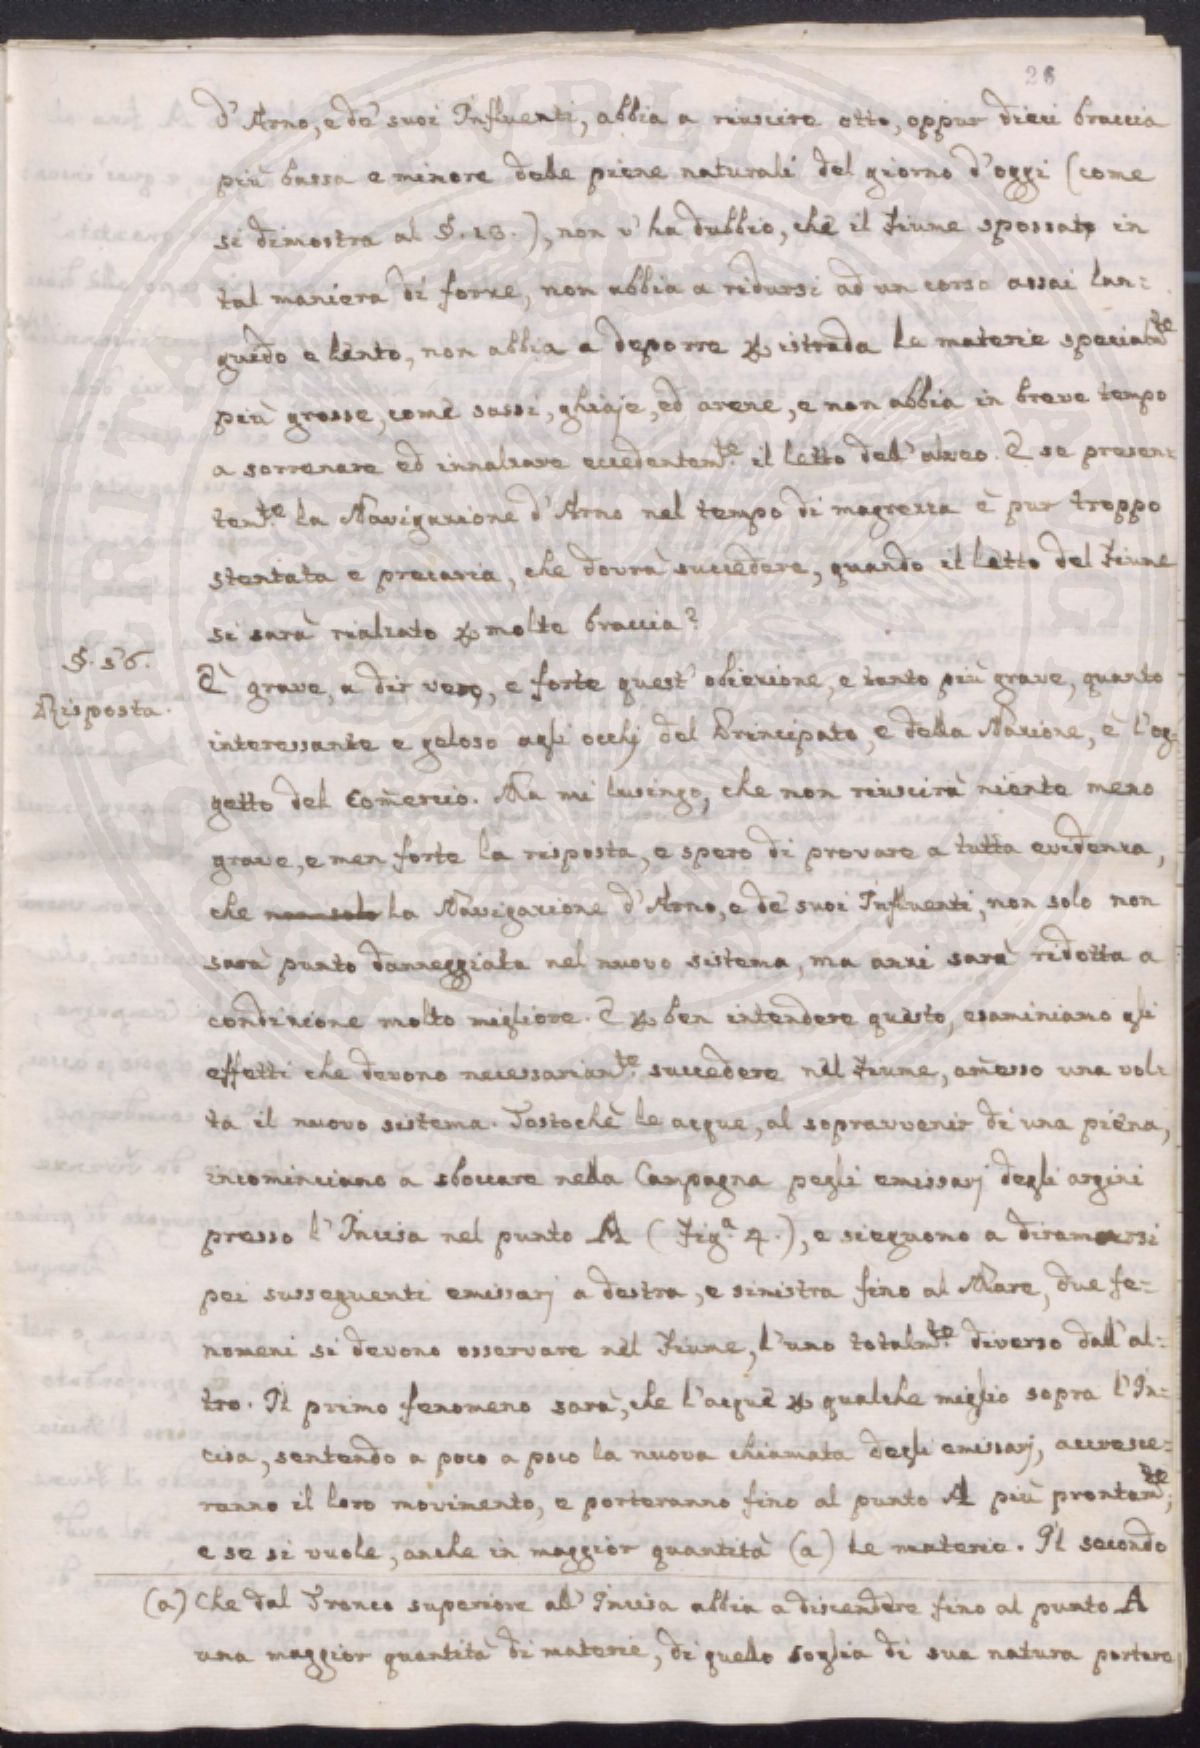 26
d'Arno, e de' suoi Influenti, abbia a riuscire otto, oppur dieci braccia
più bassa e minore delle piene naturali del giorno d'oggi (come
si dimostra al §. 18.), non v'ha dubbio, che il Fiume spossato in
tal maniera di forze, non abbia a ridursi ad un corso assai lan:
guido e lento, non abbia a deporre p istrada le materie specialmte
più grosse, come sassi, ghiaje, ed arene, e non abbia in breve tempo
a sorrenare ed innalzare eccedentemte il letto dell'alveo. E se presen:
temte la Navigazione d'Arno nel tempo di magrezza è pur troppo
stentata e precaria, che dovrà succedere, quando il letto del Fiume
si sarà rialzato p molte braccia?
§. 56.
Risposta.
È grave, a dir vero, e forte quest'obiezione, e tanto più grave, quanto
interessante e geloso agli occhj del Principato, e della Nazione, è l'og:
getto del Comercio. Ma mi lusingo, che non riuscirà niente meno
grave, e men forte la risposta, e spero di provare a tutta evidenza,
che non solo la Navigazione d'Arno, e de' suoi Influenti, non solo non
sarà punto danneggiata nel nuovo sistema, ma anzi sarà ridotta a
condizione molto migliore. E p ben intendere questo, esaminiamo gli
effetti che devono necessariamte succedere nel Fiume, amesso una vol:
ta il nuovo sistema. Tostochè le acque, al sopravvenir di una piena,
incominciano a sboccare nella Campagna pegli emissarj degli argini
presso l'Incisa nel punto A (Figa. 4.), e sieguono a diramarsi
pei susseguenti emissarj a destra, e sinistra fino al Mare, due fe-
nomeni si devono osservare nel Fiume, l'uno totalmte diverso dall'al:
tro. Il primo fenomeno sarà, che l'acque p qualche miglio sopra l'In:
cisa, sentendo a poco a poco la nuova chiamata degli emissarj, accresce:
ranno il loro movimento, e porteranno fino al punto A più prontamte;
e se si vuole, anche in maggior quantità (a) le materie. Il secondo
(a) Che dal Tronco superiore all'Incisa abbia a discendere fino al punto A
una maggior quantità di materie, di quello soglia di sua natura portare